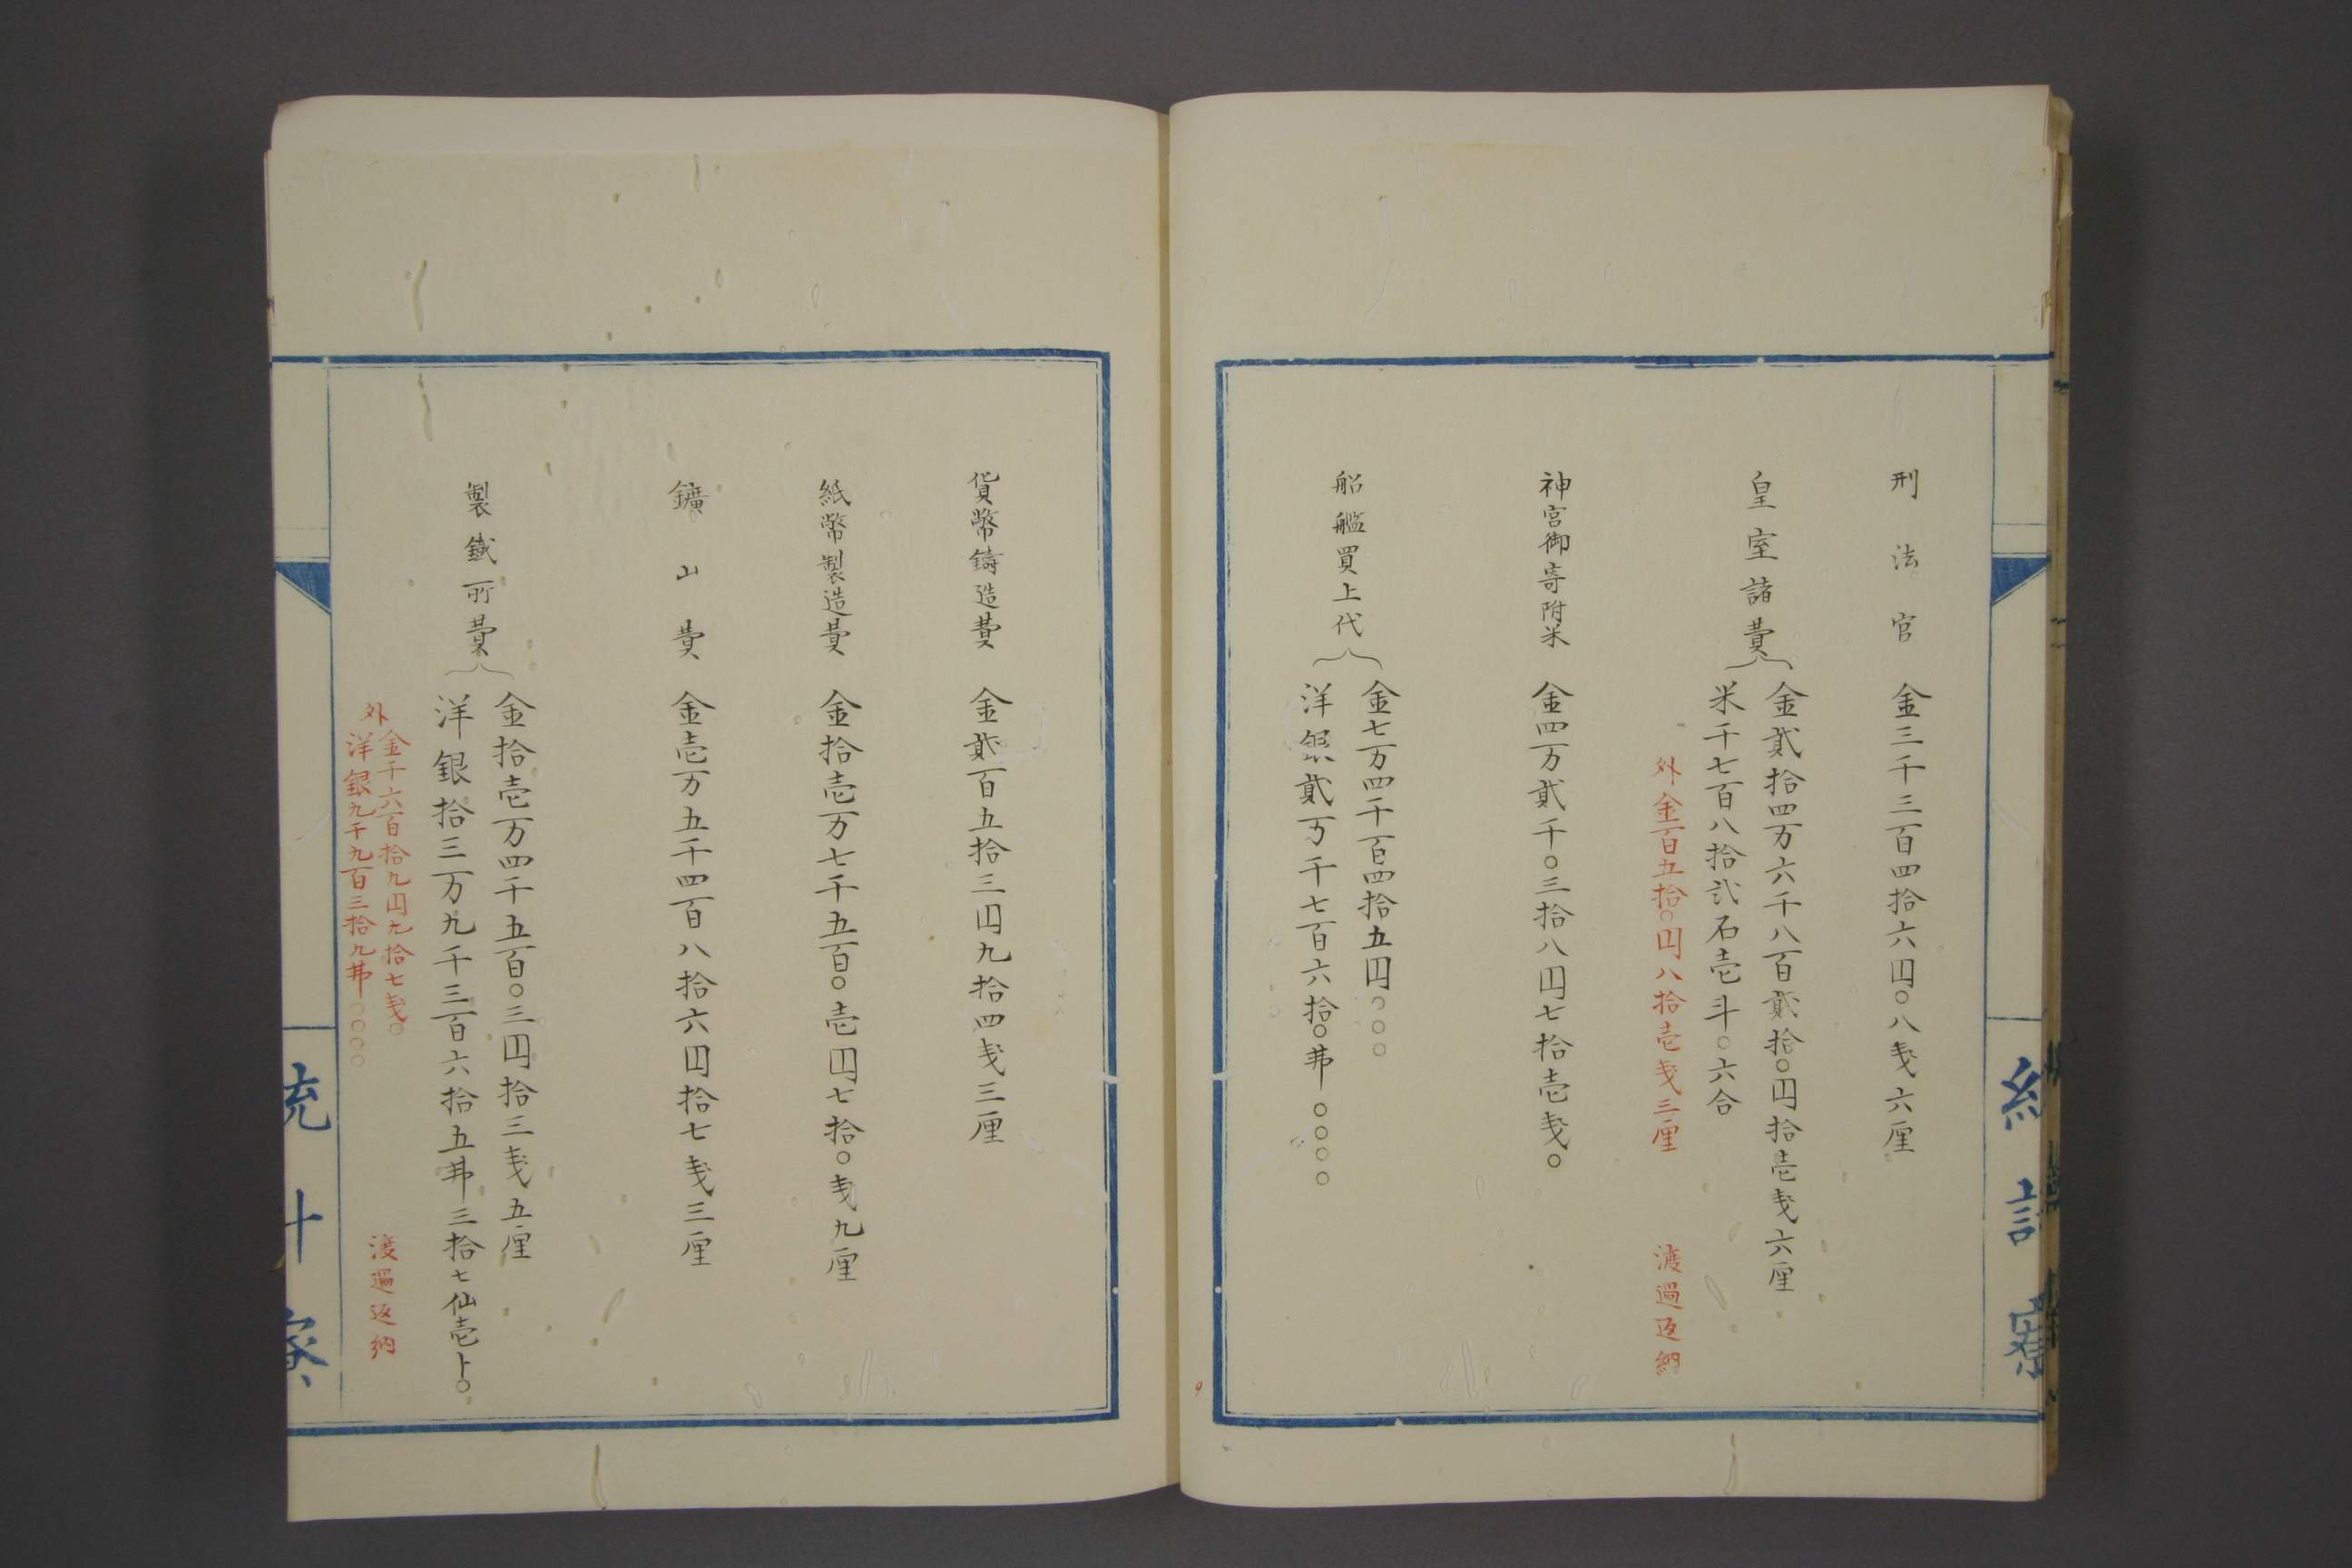 刑法官 金三千三百四拾六円〇八戔六厘
皇室諸費
金貳拾四万六千八百貳拾〇円拾壱戔六厘
米千七百八拾弐石壱斗〇六合
外金百五拾〇円八拾壱戔三厘 渡過返納
神宮御寄附米 金四万貳千〇三拾八円七拾壱戔〇
船艦買上代
金七万四千百四拾五円〇〇〇
洋銀貳万千七百六拾〇弗〇〇〇〇
貨幣鋳造費 金貳百五拾三円九拾四戔三厘
紙幣製造費 金拾壱万七千五百〇壱円七拾〇戔九厘
鑛山費 金壱万五千四百八拾六円拾七戔三厘
製鐵所費
金拾壱万四千五百〇三円拾三戔五厘
洋銀拾三万九千三百六拾五弗三拾七仙壱ト〇
外
金千六百拾九円九拾七戔〇
洋銀九千九百三拾九弗〇〇〇〇
渡過返納
統計寮